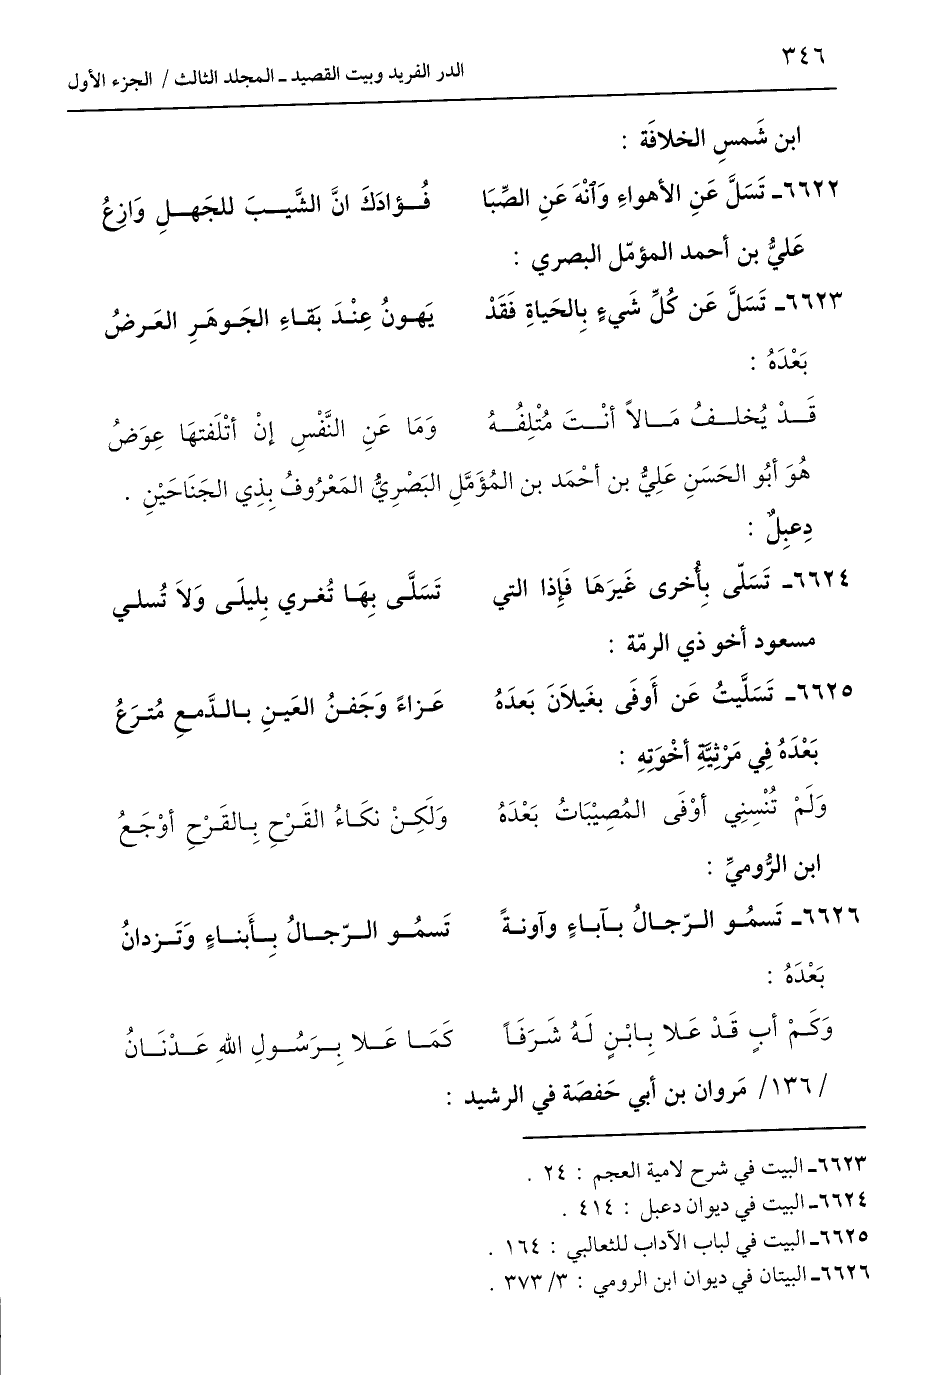 ٣٤٦
الدر الفريد وبيت القصيد ـ المجلد الثالث / الجزء الأول
ابن شَمسِ الخلافَة :
٦٦٢٢ـ تَسَلَّ عَنِ الأهواءِ وَٱنْهَ عَنِ الصِّبَا فُـؤادَكَ انَّ الشَّيـبَ للجَهـلِ وَازِعُ
عَليُّ بن أحمد المؤمّل البصري :
٦٦٢٣ـ تَسَلَّ عَن كُلِّ شَيءٍ بِالحَياةِ فَقَدْ يَهونُ عِنْدَ بَقاءِ الجَوهَرِ العَرضُ
بَعْدَهُ :
قَـدْ يُخلـفُ مَـالاً أنْـتَ مُتْلِفُـهُ وَمَا عَنِ النَّفْسِ إنْ أتْلَفتهَا عِوَضُ
هُوَ أبُو الحَسَنِ عَلِيُّ بن أحْمَد بن المُؤَمَّلِ البَصْرِيُّ المَعْرُوفُ بِذِي الجَنَاحَيْنِ .
دِعبِلٌ :
٦٦٢٤ـ تَسَلّى بِأُخرى غَيرَهَا فَإِذا التي تَسَلَّى بِهَا تُغري بِليلَى وَلاَ تُسلي
مسعود أخو ذي الرمّة :
٦٦٢٥ـ تَسَلَّيتُ عَن أَوفَى بغَيلاَنَ بَعدَهُ عَـزاءً وَجَفنُ العَينِ بـالدَّمعِ مُترَعُ
بَعْدَهُ فِي مَرْثِيَّةِ أخْوَتِهِ :
وَلَمْ تُنْسِنِي أوْفَى المُصِيْبَاتُ بَعْدَهُ وَلَكِـنْ نكَـاءُ القَـرْحِ بِـالقَـرْحِ أوْجَـعُ
ابن الرُّوميِّ :
٦٦٢٦ـ تَسمُـو الـرّجالُ بـآباءٍ وآونـةً تَسمُـو الـرّجـالُ بِـأَبنـاءٍ وَتَـزدانُ
بَعْدَهُ :
وَكَـمْ أبٍ قَـدْ عَـلا بِـابْـنٍ لَـهُ شَـرَفَـاً كَمَـا عَـلا بِـرَسُـولِ اللهِ عَـدْنَـانُ
/ ١٣٦/ مَروان بن أبي حَفصَة في الرشيد :
٦٦٢٣ـ البيت في شرح لامية العجم : ٢٤ .
٦٦٢٤ـ البيت في ديوان دعبل : ٤١٤ .
٦٦٢٥ـ البيت في لباب الآداب للثعالبي : ١٦٤ .
٦٦٢٦ـ البيتان في ديوان ابن الرومي : ٣/ ٣٧٣ .